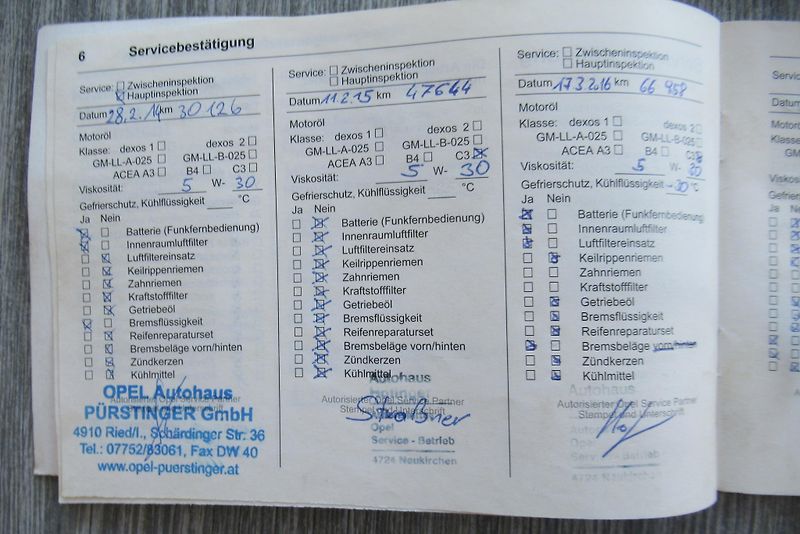 6 Servicebestätigung
Service: Zwischeninspektion
Hauptinspektion
Datum 28.2.14 km 30 126
Motoröl
Klasse: dexos 1 dexos 2
GM-LL-A-025 GM-LL-B-025
ACEA A3 B4 C3
Viskosität: 5 W- 30
Gefrierschutz, Kühlflüssigkeit °C
Ja Nein
Batterie (Funkfernbedienung)
Innenraumluftfilter
Luftfiltereinsatz
Keilrippenriemen
Zahnriemen
Kraftstofffilter
Getriebeöl
Bremsflüssigkeit
Reifenreparaturset
Bremsbeläge vorn/hinten
Zündkerzen
Kühlmittel
OPEL Autohaus
Autorisierter Opel Service Partner
PÜRSTINGER GmbH
4910 Ried/I., Schärdinger Str. 36
Tel.: 07752/83061, Fax DW 40
www.opel-puerstinger.at
Service: Zwischeninspektion
Hauptinspektion
Datum 11.2.15 km 47644
Motoröl
Klasse: dexos 1 dexos 2
GM-LL-A-025 GM-LL-B-025
ACEA A3 B4 C3
Viskosität: 5 W- 30
Gefrierschutz, Kühlflüssigkeit °C
Ja Nein
Batterie (Funkfernbedienung)
Innenraumluftfilter
Luftfiltereinsatz
Keilrippenriemen
Zahnriemen
Kraftstofffilter
Getriebeöl
Bremsflüssigkeit
Reifenreparaturset
Bremsbeläge vorn/hinten
Zündkerzen
Kühlmittel
Autohaus
Autorisierter Opel Service Partner
Stempel und Unterschrift
Opel
Service - Betrieb
4724 Neukirchen
Service: Zwischeninspektion
Hauptinspektion
Datum 17.3.2016 km 66 958
Motoröl
Klasse: dexos 1 dexos 2
GM-LL-A-025 GM-LL-B-025
ACEA A3 B4 C3
Viskosität: 5 W- 30
Gefrierschutz, Kühlflüssigkeit -30 °C
Ja Nein
Batterie (Funkfernbedienung
Innenraumluftfilter
Luftfiltereinsatz
Keilrippenriemen
Zahnriemen
Kraftstofffilter
Getriebeöl
Bremsflüssigkeit
Reifenreparaturset
Bremsbeläge vorn/hinten
Zündkerzen
Kühlmittel
Autohaus
Autorisierter Opel Service Partner
Stempel und Unterschrift
Opel
Service - Betrieb
4724 Neukirchen